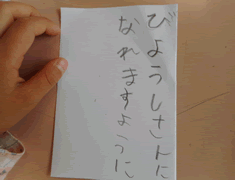 びようしさんに
なれますように